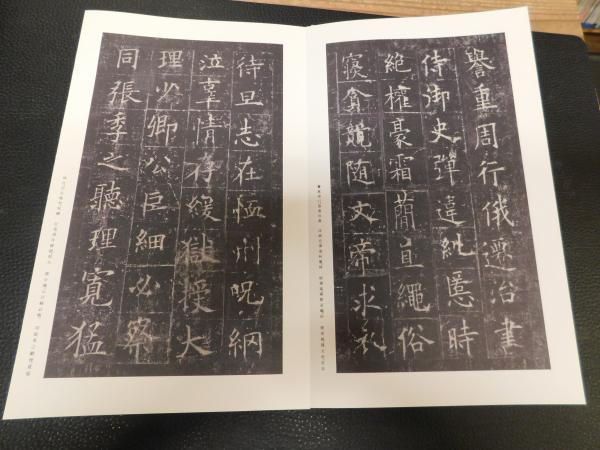 譽重周行俄遷治書
侍御史彈違糺慝時
絶權豪霜蕳直繩俗
寢貪競随文帝求衣
待旦志在恤刑呪網
泣辜情存緩獄授大
理少卿公巨細必察
同張季之聽理寛猛